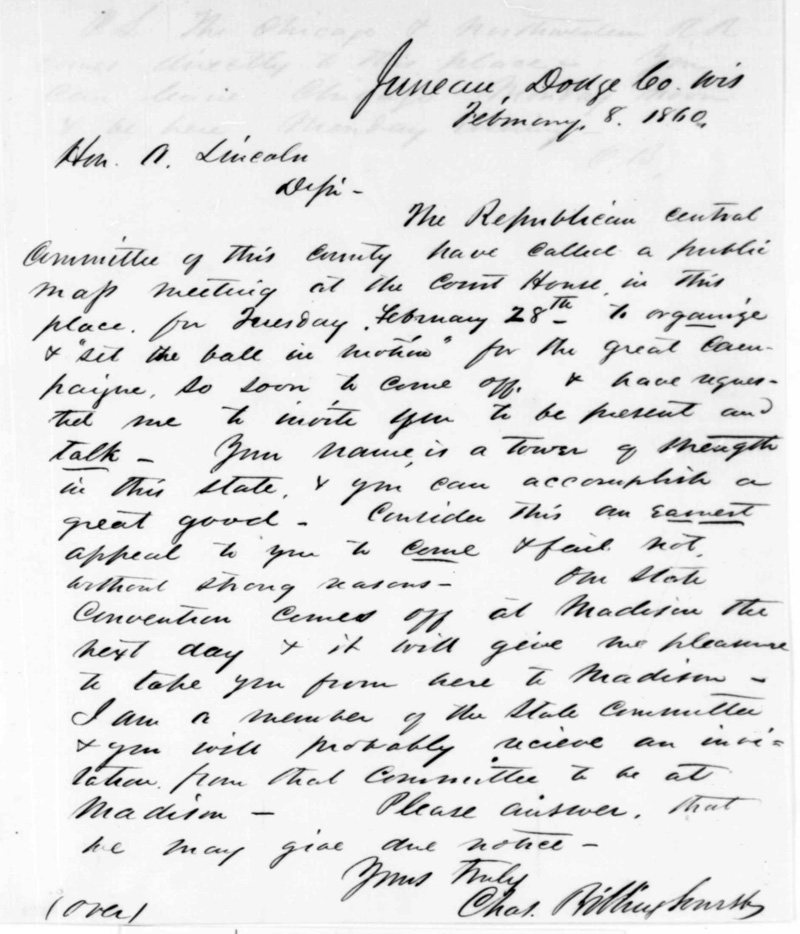 Juneau, Dodge Co. Wis
February, 8. 1860.
Hon. A. Lincoln
D Sir -
The Republican central
Committee of this county have called a public
mass meeting at the Court House, in this
place, for Tuesday, February 28th - to organize
& "set the ball in motion" for the great Cam-
paigne, so soon to come off, & have reques-
ted me to invite you to be present and
talk - Your name, is a tower of strength
in this state, & you can accomplish a
great good - Consider this an earnest
appeal to you to come & fail not,
without strong reasons - Our State
Convention comes off at Madison the
next day & it will give me pleasure
to take you from here to Madison -
I am a member of the State Committee
& you will probably recieve an invi=
tation from that Committee to be at
Madison - Please answer, that
we may give due notice -
Yours truly
Chas. Billinghurst
(over)